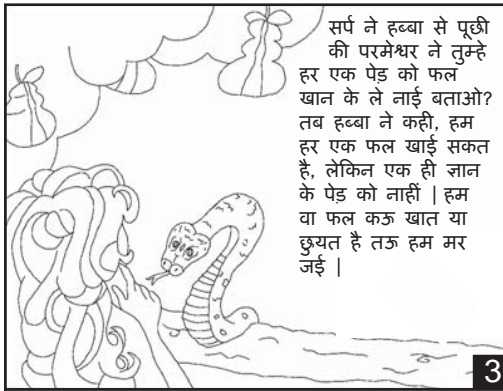 सर्प ने हब्बा से पूछी
की परमेश्वर ने तुम्हे
हर एक पेड़ को फल
खान के ले नाई बताओ?
तब हब्बा ने कही, हम
हर एक फल खाई सकत
है, लेकिन एक ही ज्ञान
के पेड़ को नाहीं | हम
वा फल कऊ खात या
छुयत है तऊ हम मर
जई |
3